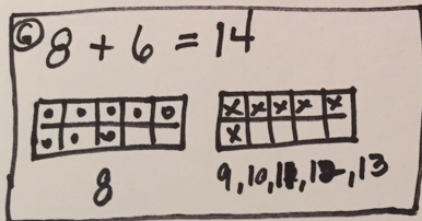 6 8 + 6 = 14
8
9, 10, 11, 12, 13